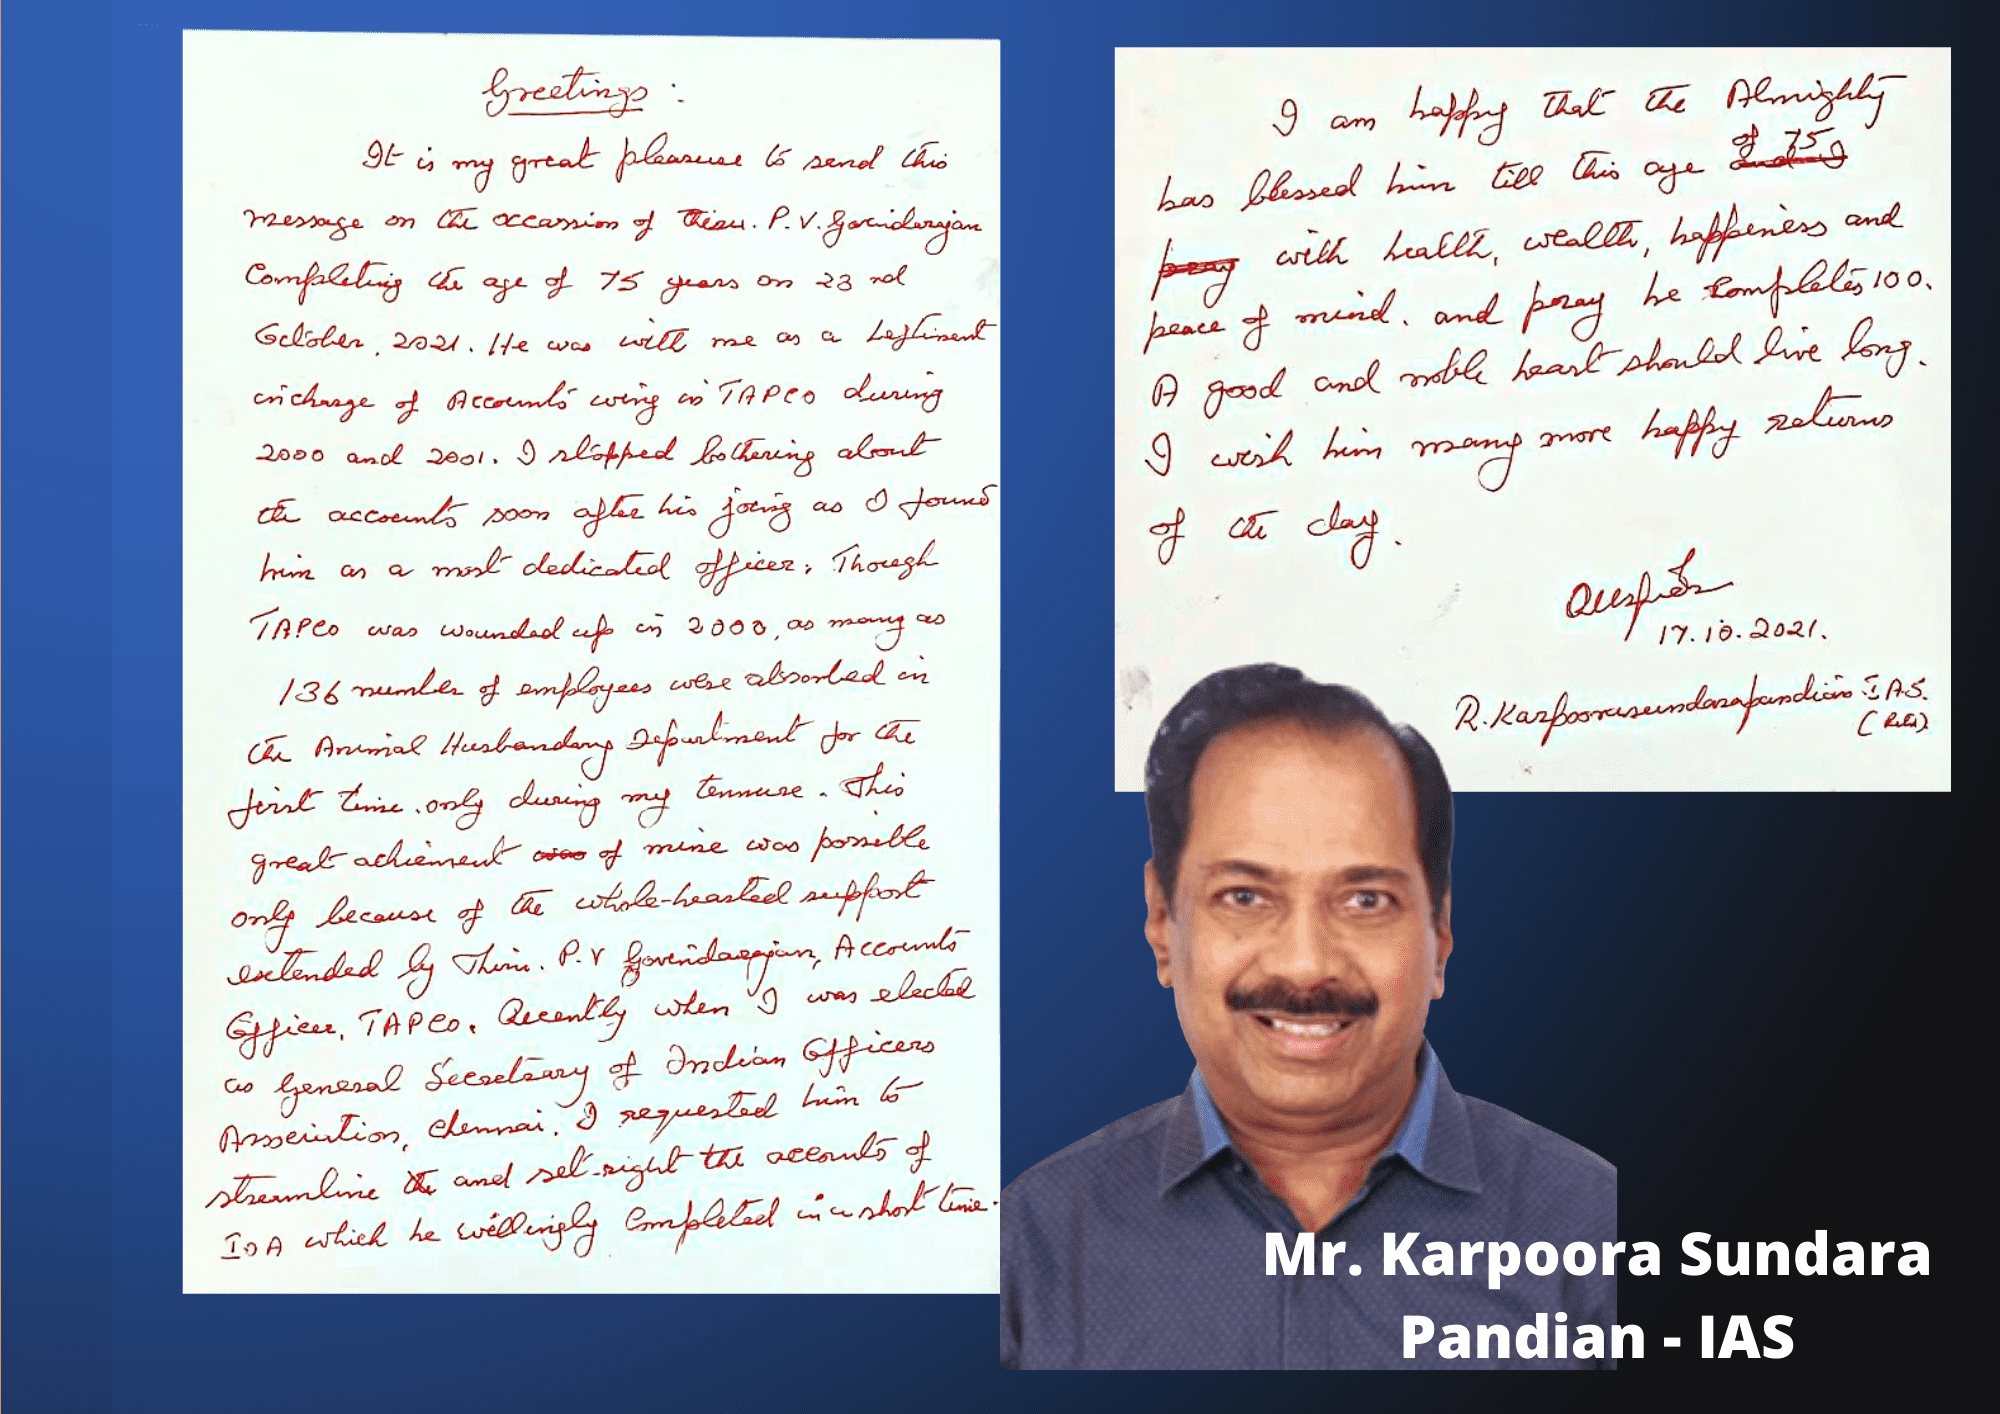 Greetings :
It is my great pleasure to send this
message on the occassion of Thiru. P.V. Govindarajan
Completing the age of 75 years on 23 rd
October, 2021. He was with me as a
incharge of Accounts wing in TAPCO during
2000 and 2001. I stopped bothering about
the accounts soon after his joing as I found
him as a most dedicated officer. Though
TAPCO was wounded up in 2000, as many as
136 number of employees were absorbed in
the Animal Husbandary Department for the
first time, only during my tennure. This
great achiement was of mine was possible
only because of the whole-hearted support
extended by Thiru. P.V Govindarajan, Accounts
Officer, TAPCO. Recently when I was elected
as General Secretary of Indian Officers
Association, Chennai, I requested him to
streamline the and set-right the accounts of
IOA which he willingly Completed in a short time.
I am happy that the Almighty
has blessed him till this age of 75 and I
pray with health, wealth, happiness and
peace of mind. and pray he completes 100.
A good and noble heart should live long.
I wish him many more happy returns
of the day.
17.10.2021.
R. Karpoorasundarapandian I.A.S.
(Retd)
Mr. Karpoora Sundara
Pandian - IAS